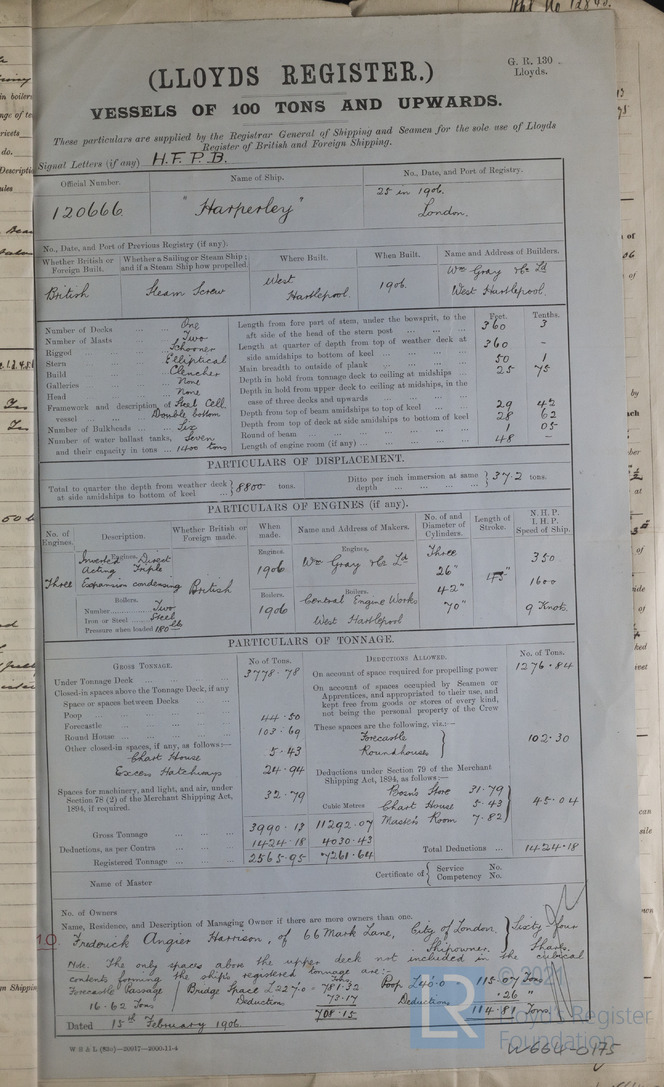 G. R. 130
Lloyds.
(LLOYDS REGISTER.)
VESSELS OF 100 TONS AND UPWARDS.
These particulars are supplied by the Registrar General of Shipping and Seamen for the sole use of Lloyds
Register of British and Foreign Shipping.
Signal Letters (if any) H.F.P.B.
Official Number. Name of Ship. No., Date, and Port of Registry.
120666 "Harperley" 25 in 1906.
London.
No., Date, and Port of Previous Registry (if any).
Whether British or Foreign Built. Whether a Sailing or Steam Ship; and if a Steam Ship how propelled. Where Built. When Built. Name and Address of Builders.
British Steam Screw West Hartlepool 1906. Wm Gray & Co Ld West Hartlepool.
Feet. Tenths.
Number of Decks One
Number of Masts Two
Rigged Schooner
Stern Elliptical
Build Clencher
Galleries None
Head None
Framework and description of vessel Steel Cell. Double bottom
Number of Bulkheads Six
Number of water ballast tanks, Seven
and their capacity in tons 1400 tons
Length from fore part of stem, under the bowsprit, to the aft side of the head of the stern post 360 3
Length at quarter of depth from top of weather deck at side amidships to bottom of keel 360 -
Main breadth to outside of plank 50 1
Depth in hold from tonnage deck to ceiling at midships 25 75
Depth in hold from upper deck to ceiling at midships, in the case of three decks and upwards
Depth from top of beam amidships to top of keel 29 42
Depth from top of deck at side amidships to bottom of keel 28 62
Round of beam 1 05
Length of engine room (if any) 48 -
PARTICULARS OF DISPLACEMENT.
Total to quarter the depth from weather deck at side amidships to bottom of keel 8800 tons. Ditto per inch immersion at same depth 37.2 tons.
PARTICULARS OF ENGINES (if any).
No. of Engines. Description. Whether British or Foreign made. When made. Name and Address of Makers. No. of and Diameter of Cylinders. Length of Stroke. N.H.P. I.H.P. Speed of Ship.
Engines. Engines. Engines.
Three Inverted Direct Acting Triple Expansion condensing British 1906 Wm Gray & Co Ld Three 26" 42" 70" 45" 350 1600 9 Knots.
Boilers. Boilers. Boilers.
Number Two
Iron or Steel Steel
Pressure when loaded 180 lbs
1906 Central Engine Works West Hartlepool
PARTICULARS OF TONNAGE.
GROSS TONNAGE. No of Tons.
Under Tonnage Deck 3778.78
Closed-in spaces above the Tonnage Deck, if any
Space or spaces between Decks
Poop 44.50
Forecastle
Round House 103.69
Other closed-in spaces, if any, as follows:—
Chart House 5.43
Excess Hatchways 24.94
Spaces for machinery, and light, and air, under Section 78 (2) of the Merchant Shipping Act, 1894, if required. 32.79
Cubic Metres
Gross Tonnage 3990.13 11292.07
Deductions, as per Contra 1424.18 4030.43
Registered Tonnage 2565.95 7261.64
DEDUCTIONS ALLOWED. No. of Tons.
On account of space required for propelling power 1276.84
On account of spaces occupied by Seamen or Apprentices, and appropriated to their use, and kept free from goods or stores of every kind, not being the personal property of the Crew
These spaces are the following, viz.:—
Forecastle
Roundhouses 102.30
Deductions under Section 79 of the Merchant Shipping Act, 1894, as follows:—
Bosn's Store 31.79
Chart House 5.43
Master's Room 7.82
45.04
Total Deductions 1424.18
Name of Master
Certificate of Service No.
Competency No.
No. of Owners
Name, Residence, and Description of Managing Owner if there are more owners than one.
10 Frederick Angier Harrison, of 66 Mark Lane, City of London. Shipowner. Sixty four Shares.
Note. The only spaces above the upper deck not included in the cubical
contents forming the ship's registered tonnage are:-
Forecastle Passage 16.62 Tons
Bridge Space L227.0 = 781.32 Tons
Deduction 73.17
708.15
Poop L40.0 = 115.07 Tons
Deduction .26 "
114.81 Tons
Dated 15th February 1906.
W B & L (82o)—20017—2000-11-4
© 2021
LR
Lloyd's Register
Foundation
W664-0175